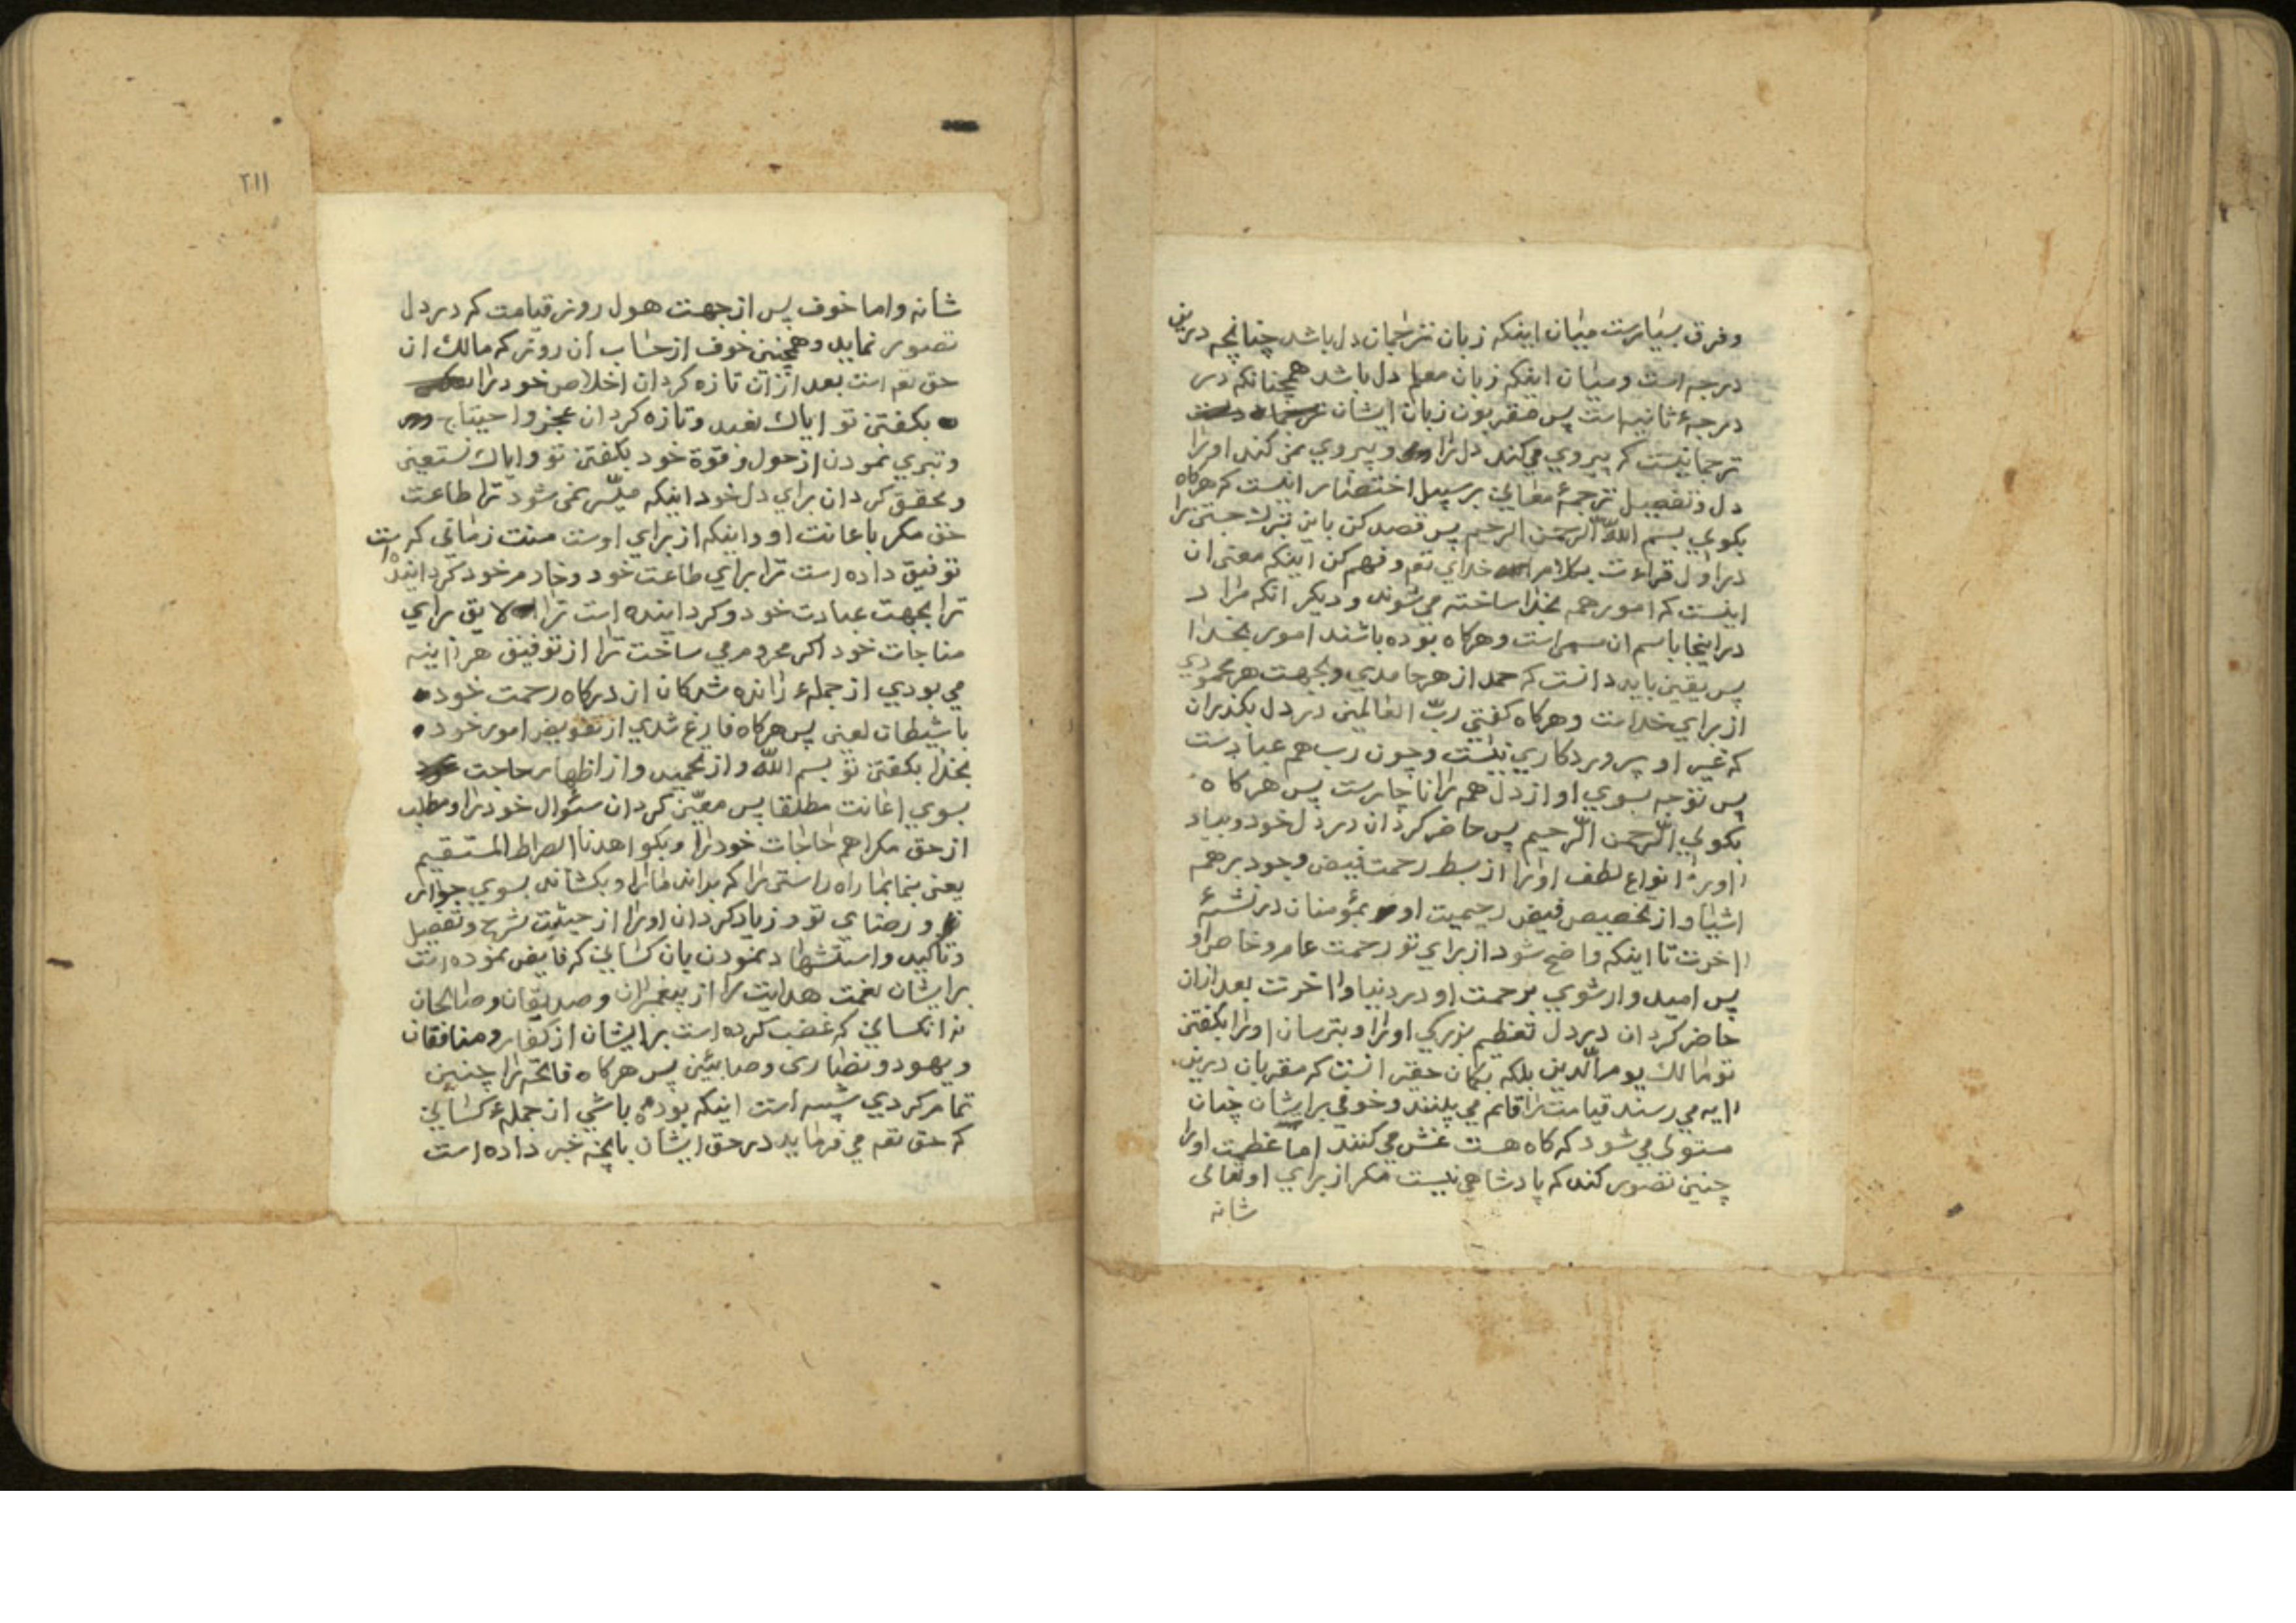 وفرق بسیارست میان اینکه زبان ترجمان دل باشد چنانچه درین
درجه است ومیان اینکه زبان معلم دل باشد همچنانکه در
درجهٔ ثانیه است پس مقربون زبان ایشان
ترجمانیست که پیروی میکند دل را وپیروی نمی کند اورا
دل وتفصیل ترجمهٔ معانی بر سبیل اختصار اینست که هرکاه
بکوی بسم الله الرحمن الرحیم پس قصد کن باین تبرک جستن را
در اول قراءت بکلام خدای تع وفهم کن اینکه معنی ان
اینست که امور همه بخدا ساخته می شوند ودیکر انکه مراد
در اینجا باسم ان مسمی است وهرکاه بوده باشند امور بخدا
پس یقین باید دانست که حمد از هر حامدی وبجهت هر محمودی
از برای خداست وهرکاه کفتی ربّ العالمین در دل بکذران
که غیر او پروردکاری نیست وچون رب هم عبادست
پس توجه بسوی او از دل هم ترا ناچارست پس هرکاه
بکوی الرّحمن الرّحیم پس حاضر کردان در دل خود وبیاد
اور انواع لطف اورا از بسط رحمت فیض وجود بر همه
اشیا واز تخصیص فیض رحیمیت او بمؤمنان در نشئهٔ
اخرت تا اینکه واضح شود از برای تو رحمت عام وخاص او
پس امیدوار شوی برحمت او در دنیا واخرت بعد ازان
حاضر کردان در دل تعظیم بزرکی اورا وبترسان اورا بکفتن
تو مالک یوم الّدین بلکه بکمان حقیر انست که مقربان درین
ایه می رسند قیامت را قائم می بینند وخوفی بر ایشان چنان
مستولی می شود که کاه هست غش می کنند اما عظمت اورا
چنین تصور کند که پادشاهی نیست مکر از برای او تعالی
شانه
٢١١
شأنه واما خوف پس از جهت هول روز قیامت که در دل
تصور نماید وهمچنین خوف از حساب آن روز که مالک ان
حق تع است بعد ازان تازه کردان اخلاص خود را
بکفتن تو ایاک نعبد وتازه کردان عجز واحتیاج
وتبری نمودن از حول وقوة خود بکفتن تو وایاک نستعین
ومحقق کردان برای دل خود اینکه میسّر نمی شود ترا طاعت
حق مکر باعانت او واینکه از برای اوست منت زمانی که
توفیق داده است ترا برای طاعت خود وخادم خود کردانیده است
ترا بجهت عبادت خود وکردانیده است ترا لایق برای
مناجات خود اکر محروم می ساخت ترا از توفیق هر اینه
می بودی از جملهٔ رانده شدکان از درکاه رحمت خود
با شیطان لعین پس هرکاه فارغ شدی از تفویض امور خود
بخدا بکفتن تو بسم الله واز تحمید واز اظهار حاجت
بسوی اعانت مطلقا پس معیّن کردان سئوال خود را ومطلب
از حق مکر اهم حاجات خود را وبکو اهدنا الصراط المستقیم
یعنی بنما بما راه راستی را که براند مارا وبکشاند بسوی جوار
تو ورضای تو وزیاد کردان اورا از حیثیت شرح وتفصیل
وتاکید واستشهاد نمودن بان کسانی که فایض نموده است
بر ایشان نعمت هدایت را از پیغمبران وصدیقان وصالحان
نه انکسانی که غضب کرده است بر ایشان از کفار ومنافقان
ویهود ونصاری وصابئین پس هرکاه فاتحه را چنین
تمام کردی شبیه است اینکه بوده باشی از جملهٔ کسانی
که حق تع می فرماید در حق ایشان بانچه خبر داده است